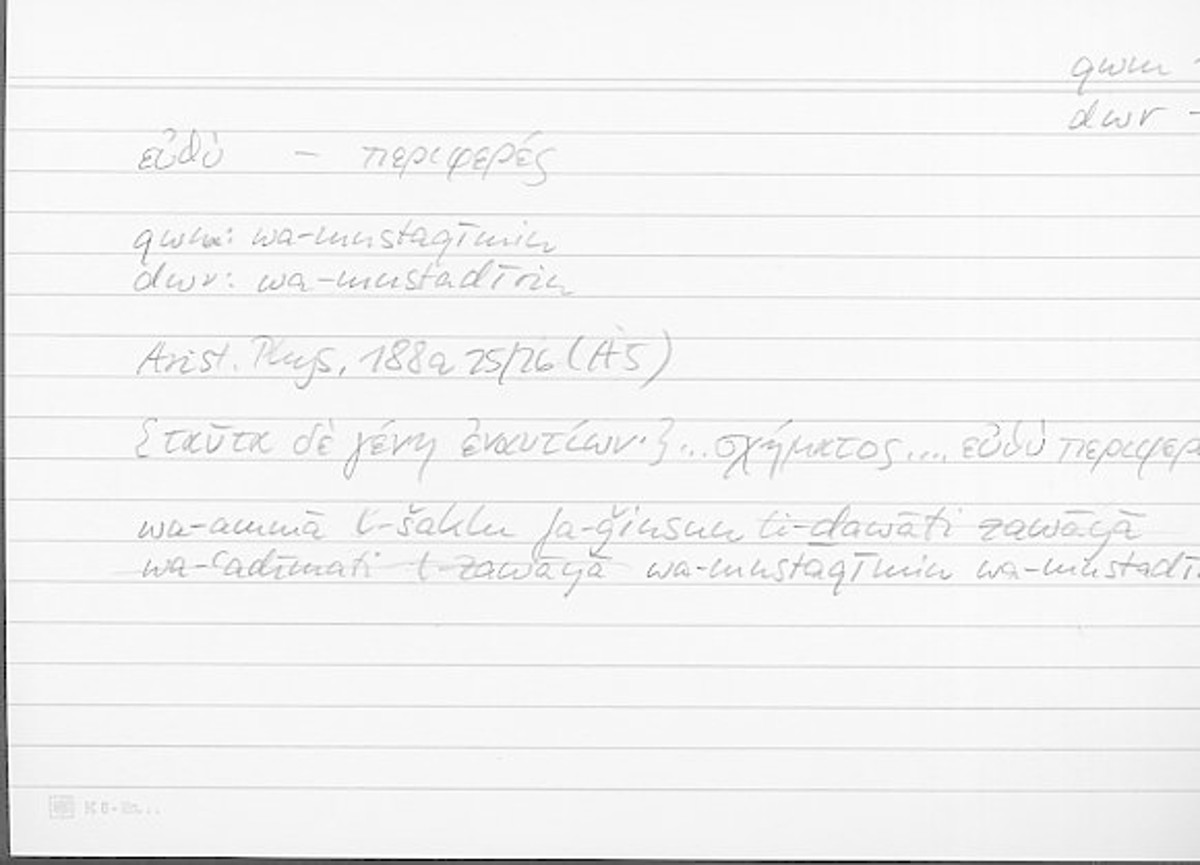 qwm
dwr -
εὐθὺ – περιφερές
qwm: wa-mustaqīmin
dwr: wa-mustadīrin
Arist. Phys, 188a 25/26 (A 5)
{ταῦτα δὲ γένη ἐναντίων·}...σχήματος.... εὐθὺ περιφερ
wa-ammā l-šaklu fa-ǧinsun li-ḏawāti zawāyā
wa-ʿadīmati l-zawāyā wa-mustaqīmin wa-mustadī